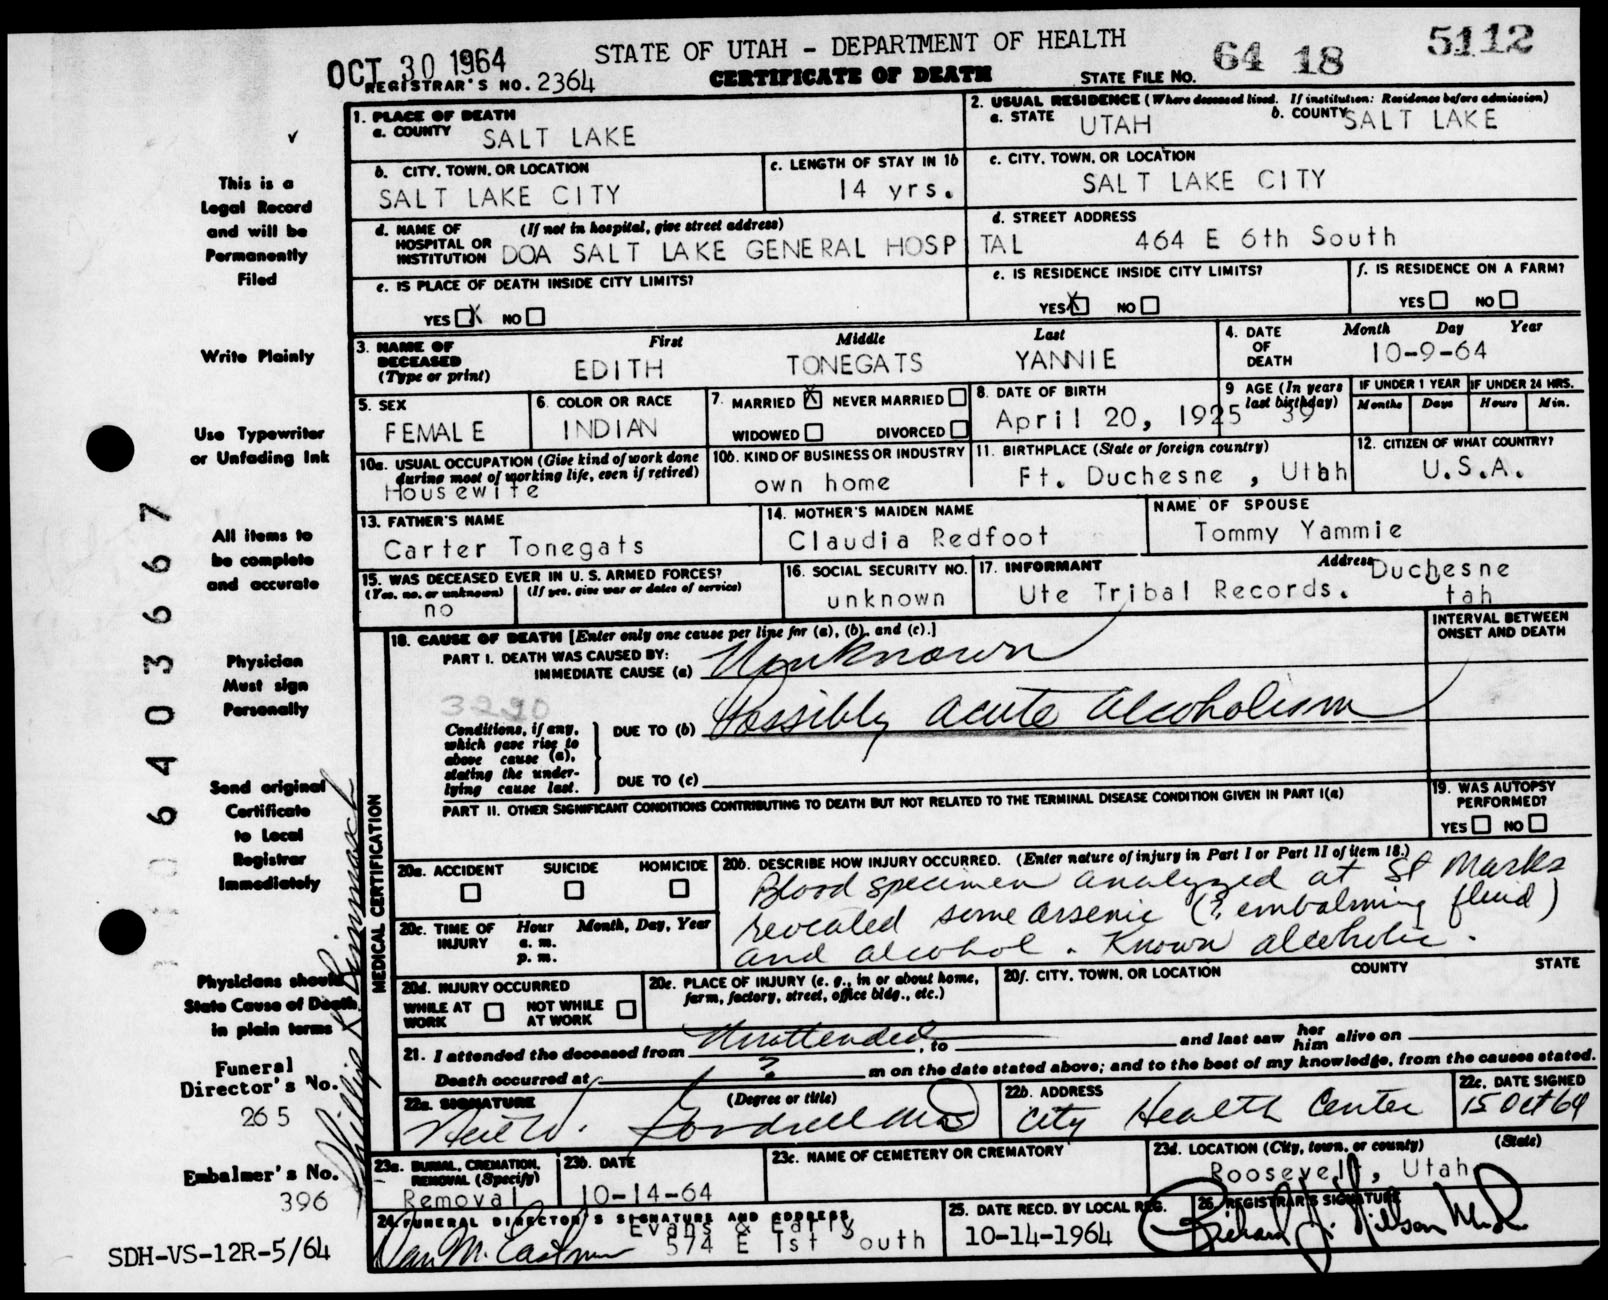 OCT 30 1964
STATE OF UTAH - DEPARTMENT OF HEALTH
64 18 5112
REGISTRAR'S NO. 2364
CERTIFICATE OF DEATH
STATE FILE NO.
1. PLACE OF DEATH
a. COUNTY SALT LAKE
2. USUAL RESIDENCE (Where deceased lived. If institution: Residence before admission)
a. STATE UTAH
b. COUNTY SALT LAKE
b. CITY, TOWN, OR LOCATION
SALT LAKE CITY
c. LENGTH OF STAY IN 1b
14 yrs.
c. CITY, TOWN, OR LOCATION
SALT LAKE CITY
d. NAME OF HOSPITAL OR INSTITUTION (If not in hospital, give street address)
DOA SALT LAKE GENERAL HOSP TAL
d. STREET ADDRESS
464 E 6th South
e. IS PLACE OF DEATH INSIDE CITY LIMITS?
YES X NO
e. IS RESIDENCE INSIDE CITY LIMITS?
YES X NO
f. IS RESIDENCE ON A FARM?
YES NO
3. NAME OF DECEASED (Type or print)
First Middle Last
EDITH TONEGATS YANNIE
4. DATE OF DEATH
Month Day Year
10-9-64
5. SEX
FEMALE
6. COLOR OR RACE
INDIAN
7. MARRIED X NEVER MARRIED
WIDOWED DIVORCED
8. DATE OF BIRTH
April 20, 1925
9 AGE (In years last birthday)
39
IF UNDER 1 YEAR
Months Days
IF UNDER 24 HRS.
Hours Min.
10a. USUAL OCCUPATION (Give kind of work done during most of working life, even if retired)
Housewife
10b. KIND OF BUSINESS OR INDUSTRY
own home
11. BIRTHPLACE (State or foreign country)
Ft. Duchesne , Utah
12. CITIZEN OF WHAT COUNTRY?
U.S.A.
13. FATHER'S NAME
Carter Tonegats
14. MOTHER'S MAIDEN NAME
Claudia Redfoot
NAME OF SPOUSE
Tommy Yammie
15. WAS DECEASED EVER IN U. S. ARMED FORCES?
(Yes, no, or unknown) (If yes, give war or dates of service)
no
16. SOCIAL SECURITY NO.
unknown
17. INFORMANT Address
Ute Tribal Records. Duchesne
Utah
18. CAUSE OF DEATH [Enter only one cause per line for (a), (b), and (c).]
INTERVAL BETWEEN ONSET AND DEATH
PART I. DEATH WAS CAUSED BY:
IMMEDIATE CAUSE (a) Unknown
3220
Conditions, if any, which gave rise to above cause (a), stating the underlying cause last.
DUE TO (b) Possibly acute alcoholism
DUE TO (c)
PART II. OTHER SIGNIFICANT CONDITIONS CONTRIBUTING TO DEATH BUT NOT RELATED TO THE TERMINAL DISEASE CONDITION GIVEN IN PART I(a)
19. WAS AUTOPSY PERFORMED?
YES NO
20a. ACCIDENT SUICIDE HOMICIDE
20b. DESCRIBE HOW INJURY OCCURRED. (Enter nature of injury in Part I or Part II of item 18.)
Blood specimen analyzed at St Marks
revealed some arsenic (? embalming fluid)
and alcohol. Known alcoholic.
20c. TIME OF INJURY
Hour Month, Day, Year
a. m.
p. m.
20d. INJURY OCCURRED
WHILE AT WORK NOT WHILE AT WORK
20e. PLACE OF INJURY (e. g., in or about home, farm, factory, street, office bldg., etc.)
20f. CITY, TOWN, OR LOCATION COUNTY STATE
21. I attended the deceased from Unattended, to and last saw her him alive on
Death occurred at ? m on the date stated above; and to the best of my knowledge, from the causes stated.
22a. SIGNATURE (Degree or title)
22b. ADDRESS
City Health Center
22c. DATE SIGNED
15 Oct 64
23a. BURIAL, CREMATION, REMOVAL (Specify)
Removal
23b. DATE
10-14-64
23c. NAME OF CEMETERY OR CREMATORY
23d. LOCATION (City, town, or county) (State)
Roosevelt, Utah
24. FUNERAL DIRECTOR'S SIGNATURE AND ADDRESS
Evans & Early
574 E 1st South
25. DATE RECD. BY LOCAL REG.
10-14-1964
26. REGISTRAR'S SIGNATURE
MEDICAL CERTIFICATION
This is a
Legal Record
and will be
Permanently
Filed
Write Plainly
Use Typewriter
or Unfading Ink
All items to
be complete
and accurate
Physician
Must sign
Personally
Send original
Certificate
to Local
Registrar
Immediately
Physicians should
State Cause of Death
in plain terms
Funeral
Director's No.
265
Embalmer's No.
396
SDH-VS-12R-5/64
6403667